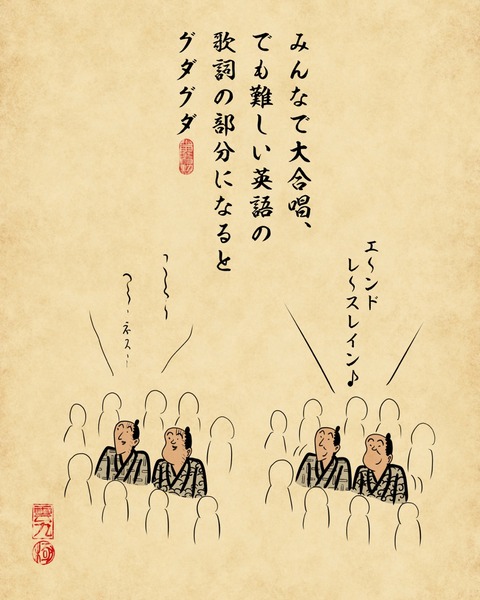 みんなで大合唱、
でも難しい英語の
歌詞の部分になると
グダグダ
エ〜ンド
レ〜スレイン♪
〜〜ネス〜